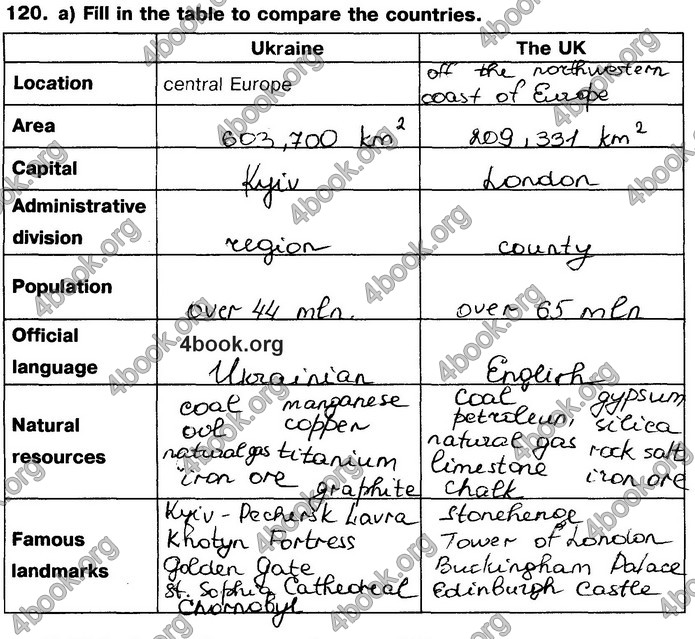 120. a) Fill in the table to compare the countries.
Ukraine The UK
Location central Europe off the northwestern coast of Europe
Area 603,700 km² 209,331 km²
Capital Kyiv London
Administrative division region county
Population over 44 mln. over 65 mln
4book.org
Official language Ukrainian English
Natural resources
coal manganese
ovl copper
natural gas titanium
iron ore graphite
coal gypsum
petroleum, silica
natural gas rock salt
limestone iron ore
chalk
Famous landmarks
Kyiv-Pechersk Lavra
Khotyn Fortress
Golden Gate
St. Sophia Cathedral
Chornobyl
Stonehenge
Tower of London
Buckingham Palace
Edinburgh Castle